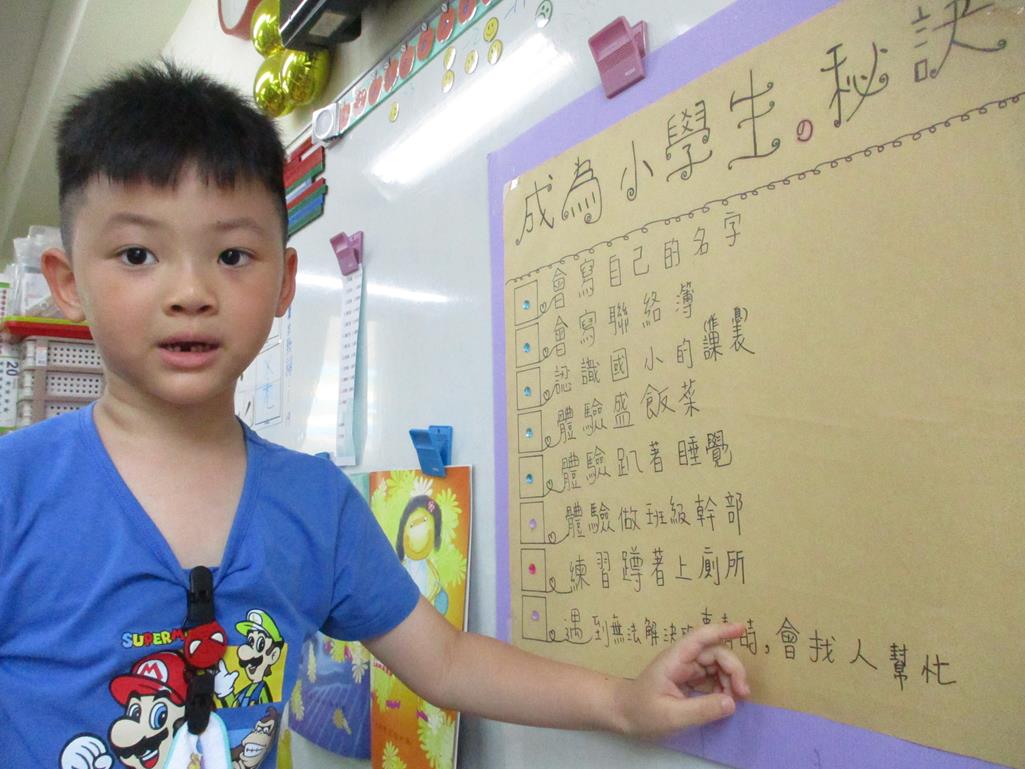 成為小學生の秘訣
會寫自己的名字
會寫聯絡簿
認識國小的課(作息)表
體驗盛飯菜
體驗趴著睡覺
體驗做班級幹部
練習蹲著上廁所
遇到無法解決時,會找人幫忙
SUPERM
20